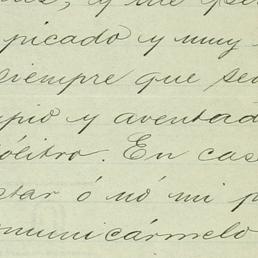 y me
picado y muy
siempre que se
pio y aventad
ólitro. En cas
tar ó nó mi p
municármelo